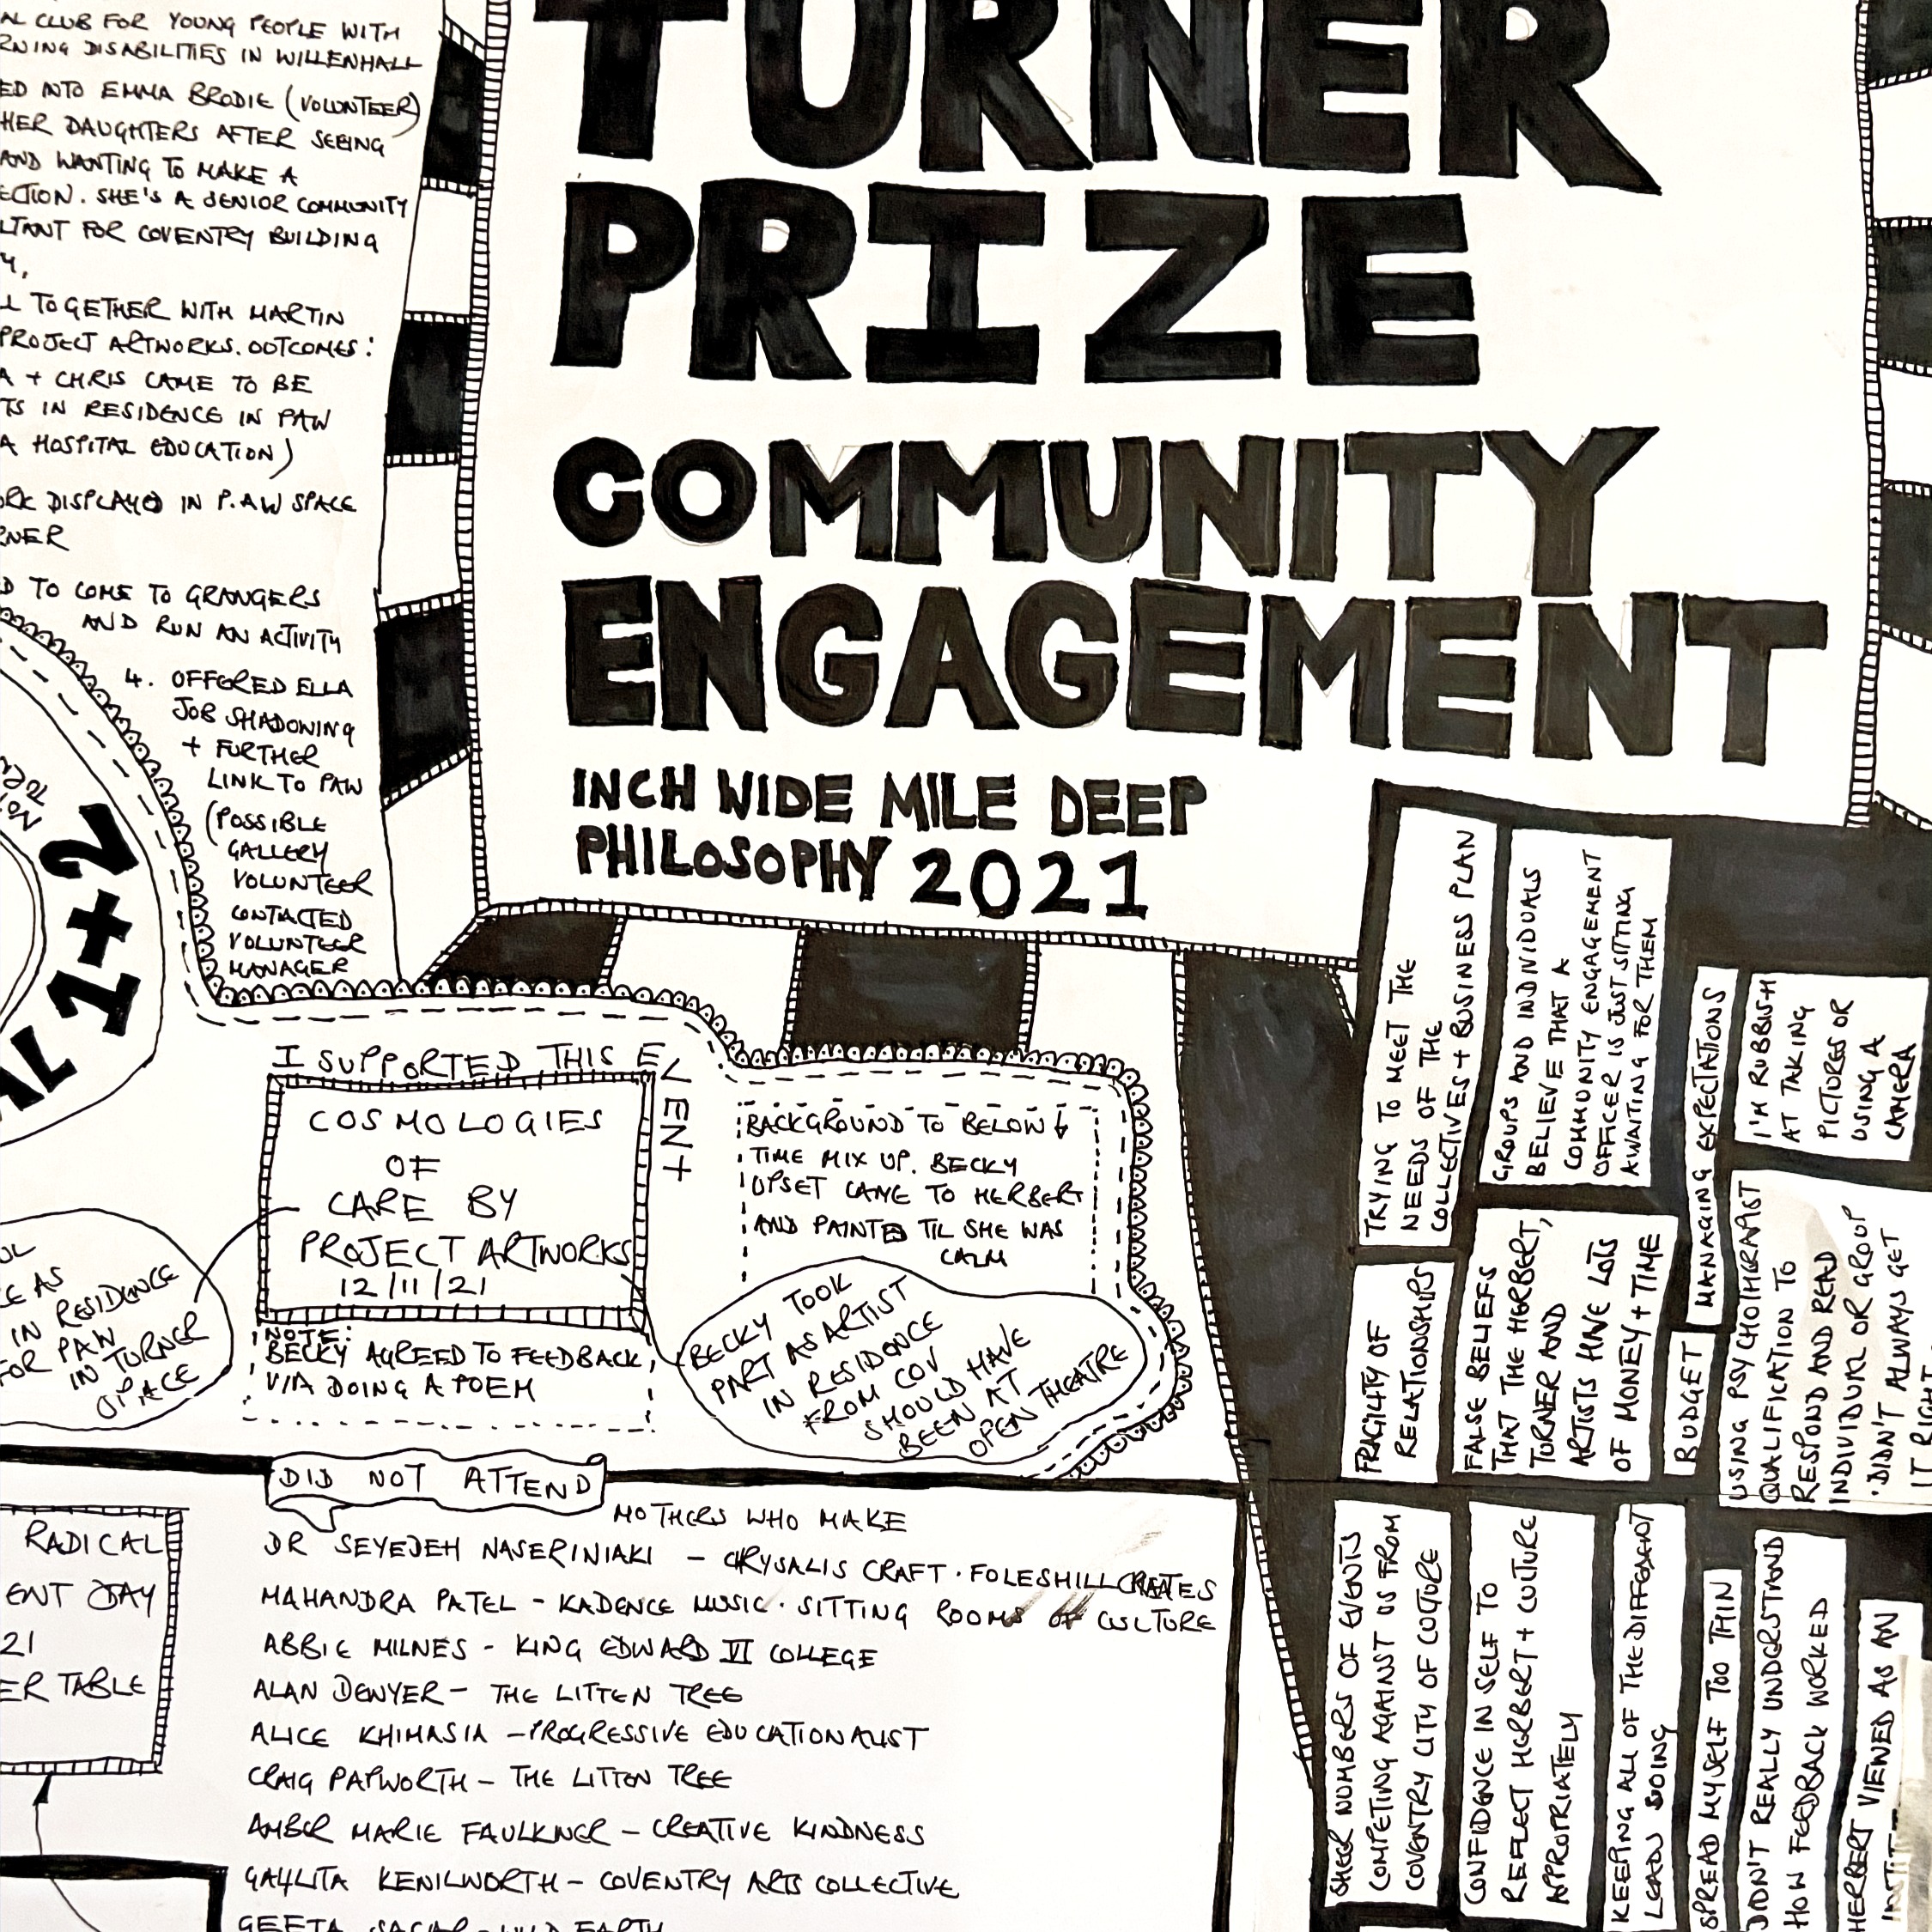 AL CLUB FOR YOUNG PEOPLE WITH
RNING DISABILITIES IN WILLENHALL
ED INTO EMMA BRODIE (VOLUNTEER)
HER DAUGHTERS AFTER SEEING
AND WANTING TO MAKE A
ECTION. SHE'S A SENIOR COMMUNITY
LTANT FOR COVENTRY BUILDING
Y,
L TOGETHER WITH MARTIN
PROJECT ARTWORKS. OUTCOMES:
A + CHRIS CAME TO BE
TS IN RESIDENCE IN PAW
A HOSPITAL EDUCATION)
ORK DISPLAYED IN P.A.W SPACE
RNER
D TO COME TO GRANGERS
AND RUN AN ACTIVITY
4. OFFERED ELLA
JOB SHADOWING
+ FURTHER
LINK TO PAW
(POSSIBLE
GALLERY
VOLUNTEER
CONTACTED
VOLUNTEER
MANAGER
AL 1+2
TURNER
PRIZE
COMMUNITY
ENGAGEMENT
INCH WIDE MILE DEEP
PHILOSOPHY 2021
I SUPPORTED THIS EVENT
COSMOLOGIES
OF
CARE BY
PROJECT ARTWORKS
12/11/21
NOTE:
BECKY AGREED TO FEEDBACK
VIA DOING A POEM
CE AS
IN RESIDENCE
FOR PAW
IN TURNER
SPACE
BACKGROUND TO BELOW ↓
TIME MIX UP. BECKY
UPSET CAME TO HERBERT
AND PAINTED TIL SHE WAS
CALM
BECKY TOOK
PART AS ARTIST
IN RESIDENCE
FROM COV
SHOULD HAVE
BEEN AT
OPEN THEATRE
TRYING TO MEET THE
NEEDS OF THE
COLLECTIVES + BUSINESS PLAN
GROUPS AND INDIVIDUALS
BELIEVE THAT A
COMMUNITY ENGAGEMENT
OFFICER IS JUST SITTING
AWAITING FOR THEM
MANAGING EXPECTATIONS
I'M RUBBISH
AT TAKING
PICTURES OR
USING A
CAMERA
FRAGILITY OF
RELATIONSHIPS
FALSE BELIEFS
THAT THE HERBERT,
TURNER AND
ARTISTS HAVE LOTS
OF MONEY + TIME
BUDGET
USING PSYCHOTHERAPIST
QUALIFICATION TO
RESPOND AND READ
INDIVIDUAL OR GROUP
. DIDN'T ALWAYS GET
IT RIGHT
SHEER NUMBERS OF EVENTS
COMPETING AGAINST US FROM
COVENTRY CITY OF CULTURE
CONFIDENCE IN SELF TO
REFLECT HERBERT + CULTURE
APPROPRIATELY
KEEPING ALL OF THE DIFFERENT
LEADS GOING
SPREAD MYSELF TOO THIN
DIDN'T REALLY UNDERSTAND
HOW FEEDBACK WORKED
HERBERT VIEWED AS AN
RADICAL
ENT DAY
21
ER TABLE
DID NOT ATTEND
MOTHERS WHO MAKE
DR SEYEDEH NASERINIAKI - CHRYSALIS CRAFT · FOLESHILL CREATES
MAHANDRA PATEL - KADENCE MUSIC · SITTING ROOMS OF CULTURE
ABBIE MILNES - KING EDWARD VI COLLEGE
ALAN DENYER - THE LITTEN TREE
ALICE KHIMASIA - PROGRESSIVE EDUCATIONALIST
CRAIG PAPWORTH - THE LITTEN TREE
AMBER MARIE FAULKNER - CREATIVE KINDNESS
KENILWORTH - COVENTRY ARTS COLLECTIVE